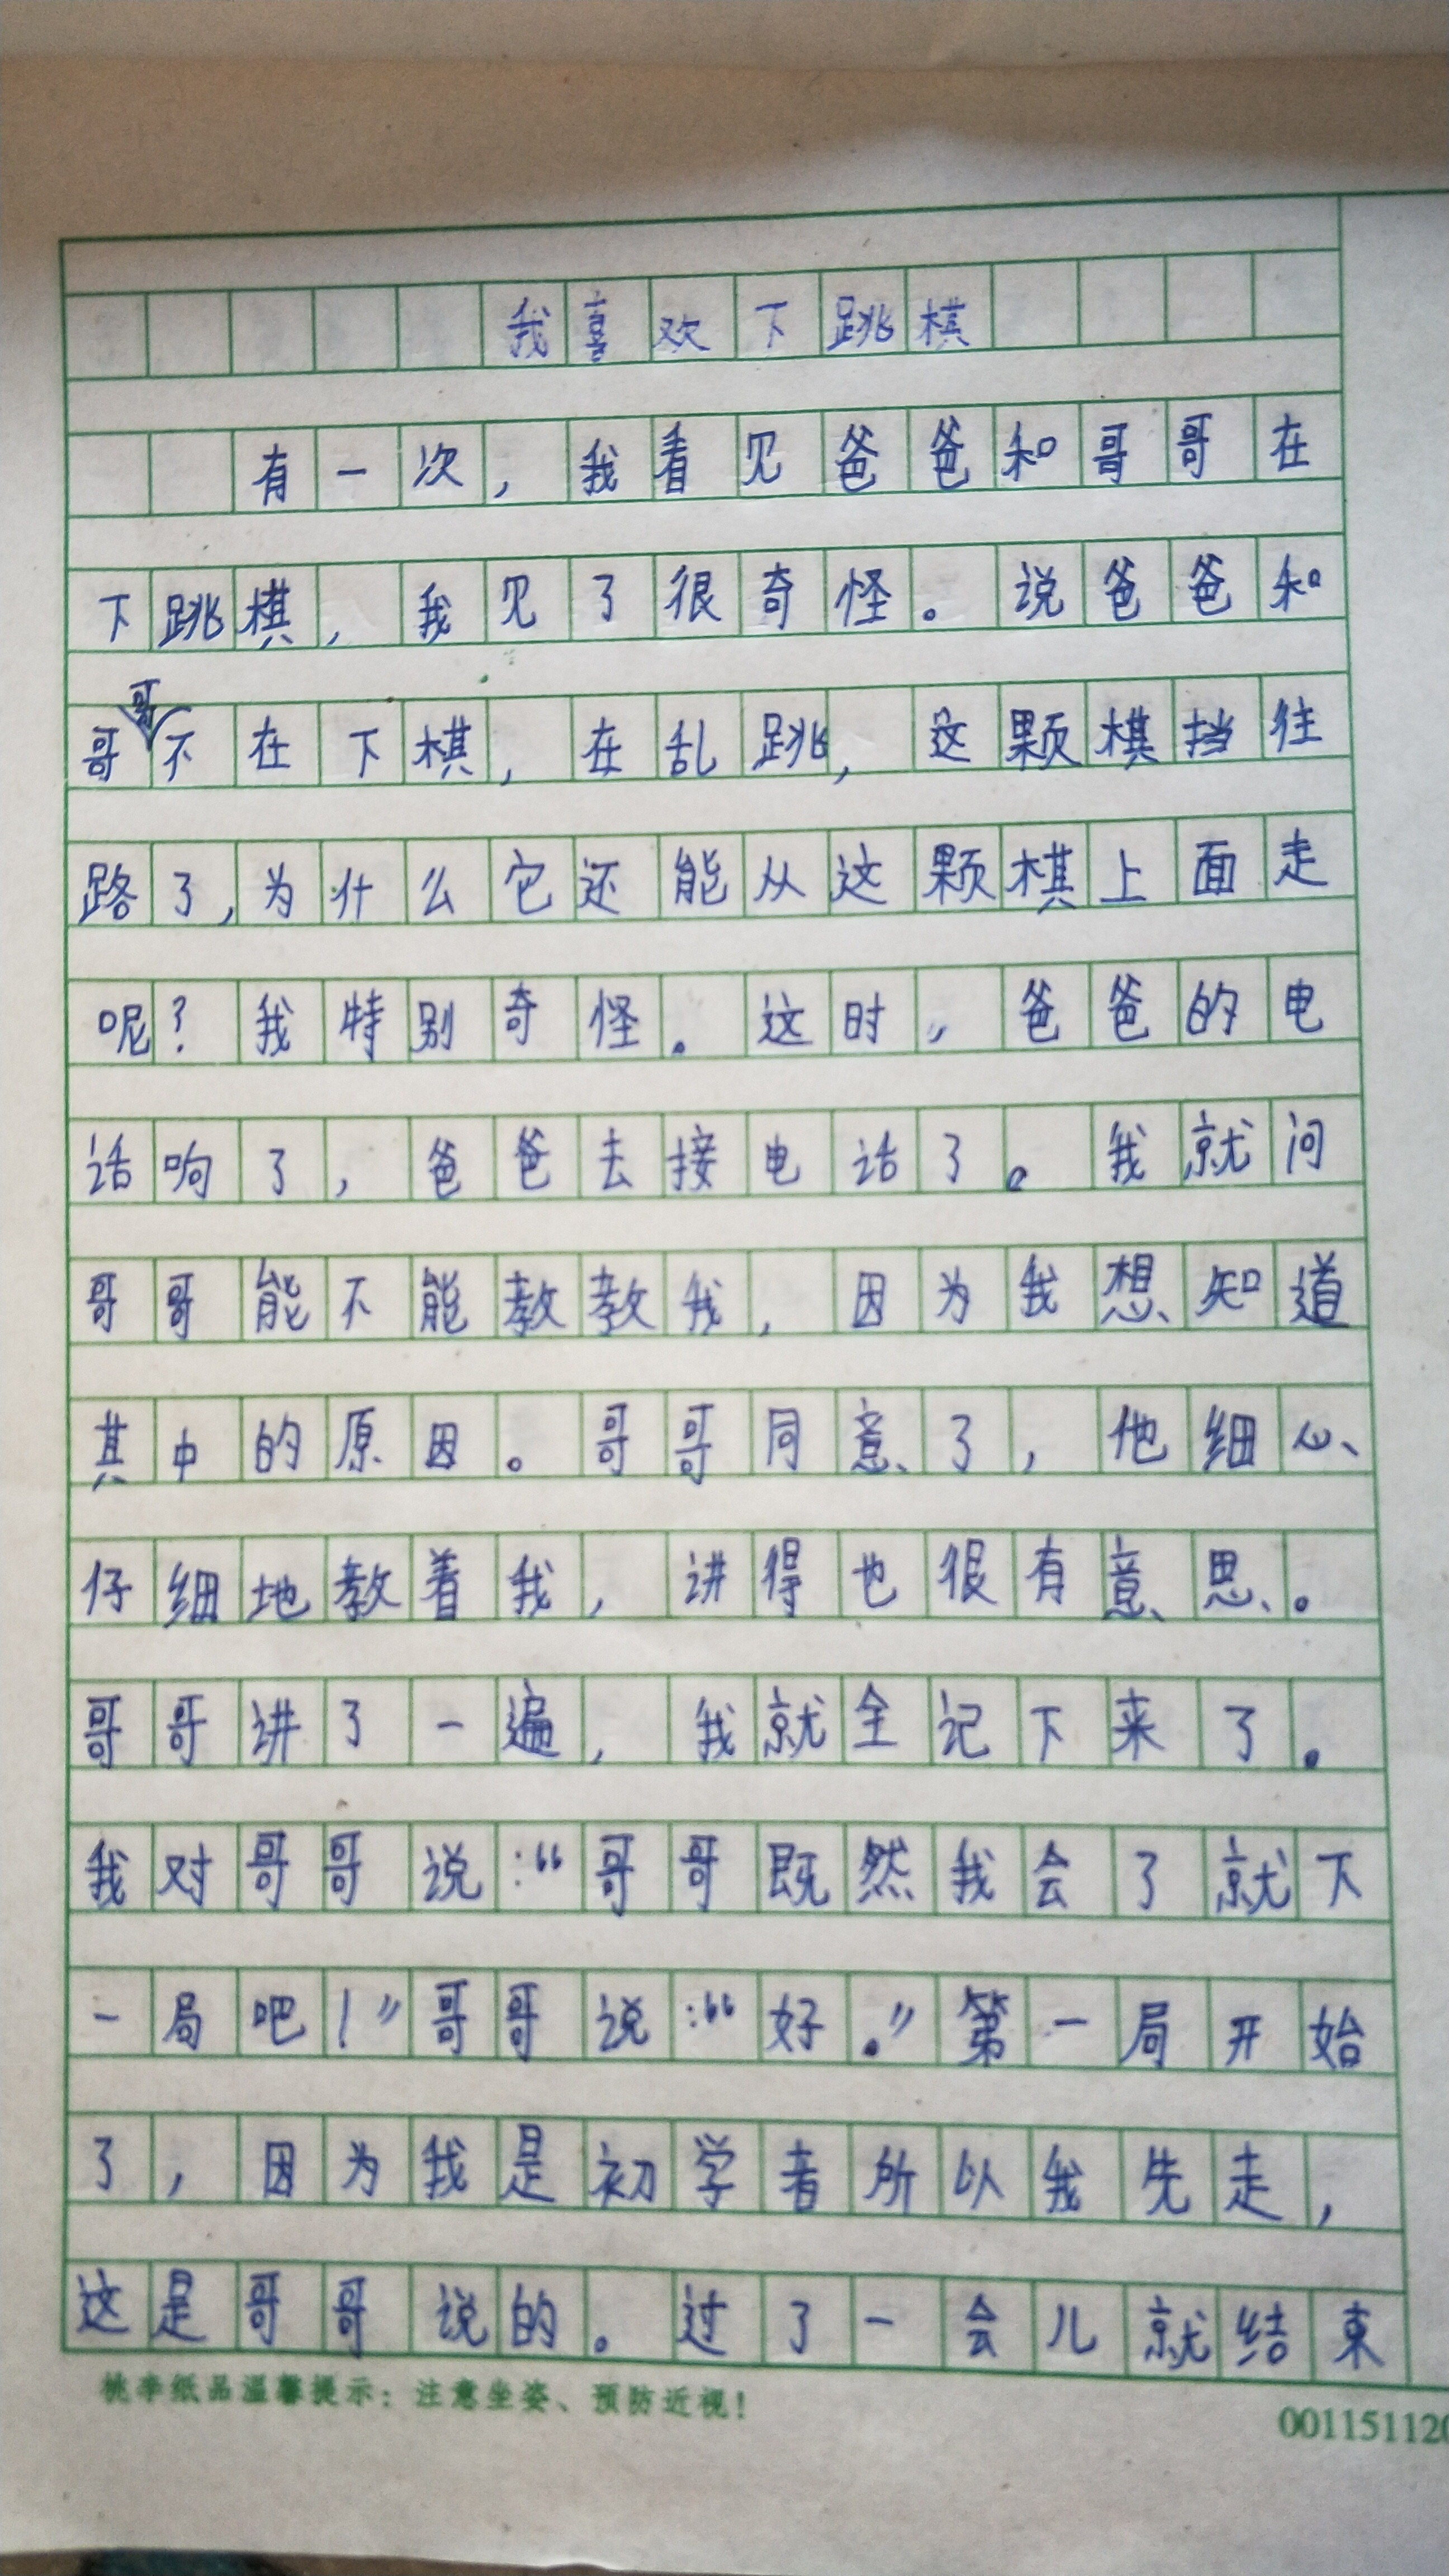 我喜欢下跳棋
有一次，我看见爸爸和哥哥在
下跳棋，我见了很奇怪。说爸爸和
哥哥不在下棋，在乱跳，这颗棋挡往
路了，为什么它还能从这颗棋上面走
呢？我特别奇怪。这时，爸爸的电
话响了，爸爸去接电话了。我就问
哥哥能不能教教我，因为我想知道
其中的原因。哥哥同意了，他细心、
仔细地教着我，讲得也很有意思。
哥哥讲了一遍，我就全记下来了。
我对哥哥说：“哥哥既然我会了就下
一局吧！”哥哥说：“好。”第一局开始
了，因为我是初学者所以我先走，
这是哥哥说的。过了一会儿就结束
桃李纸品温馨提示：注意坐姿、预防近视！
00115112